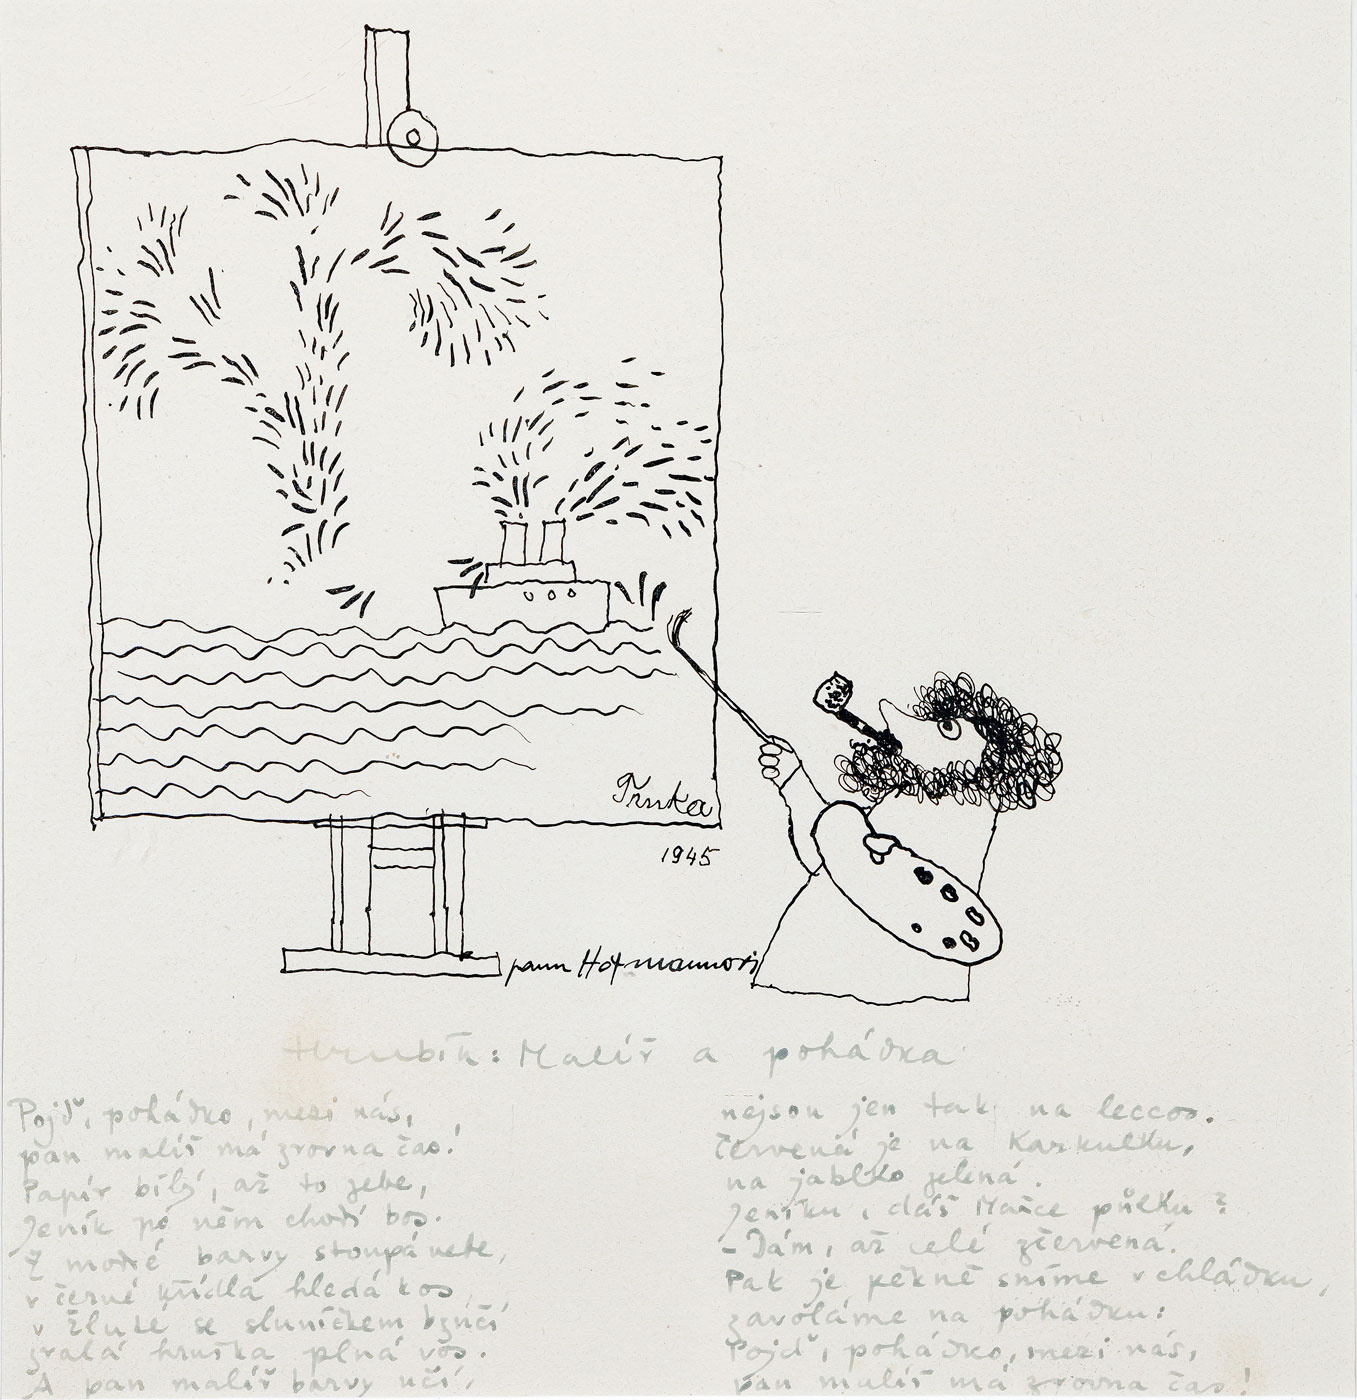 Trnka
1945
panu Hofmannovi
Hrubín: Malíř a pohádka
Pojď, pohádko, mezi nás,
pan malíř má zrovna čas!
Papír bílý, až to zebe,
Jeník po něm chodí bos.
Z modré barvy stoupá nebe,
v černé křídla hledá kos,
v žluté se sluníčkem bzučí
zralá hruška plná vos.
A pan malíř barvy učí,
nejsou jen tak na leccos.
Červená je na Karkulku,
na jablko zelená.
Jeníku, dáš Mařce půlku?
- Dám, až celé zčervená.
Pak je pěkně sníme v chládku,
zavoláme na pohádku:
Pojď, pohádko, mezi nás,
pan malíř má zrovna čas!